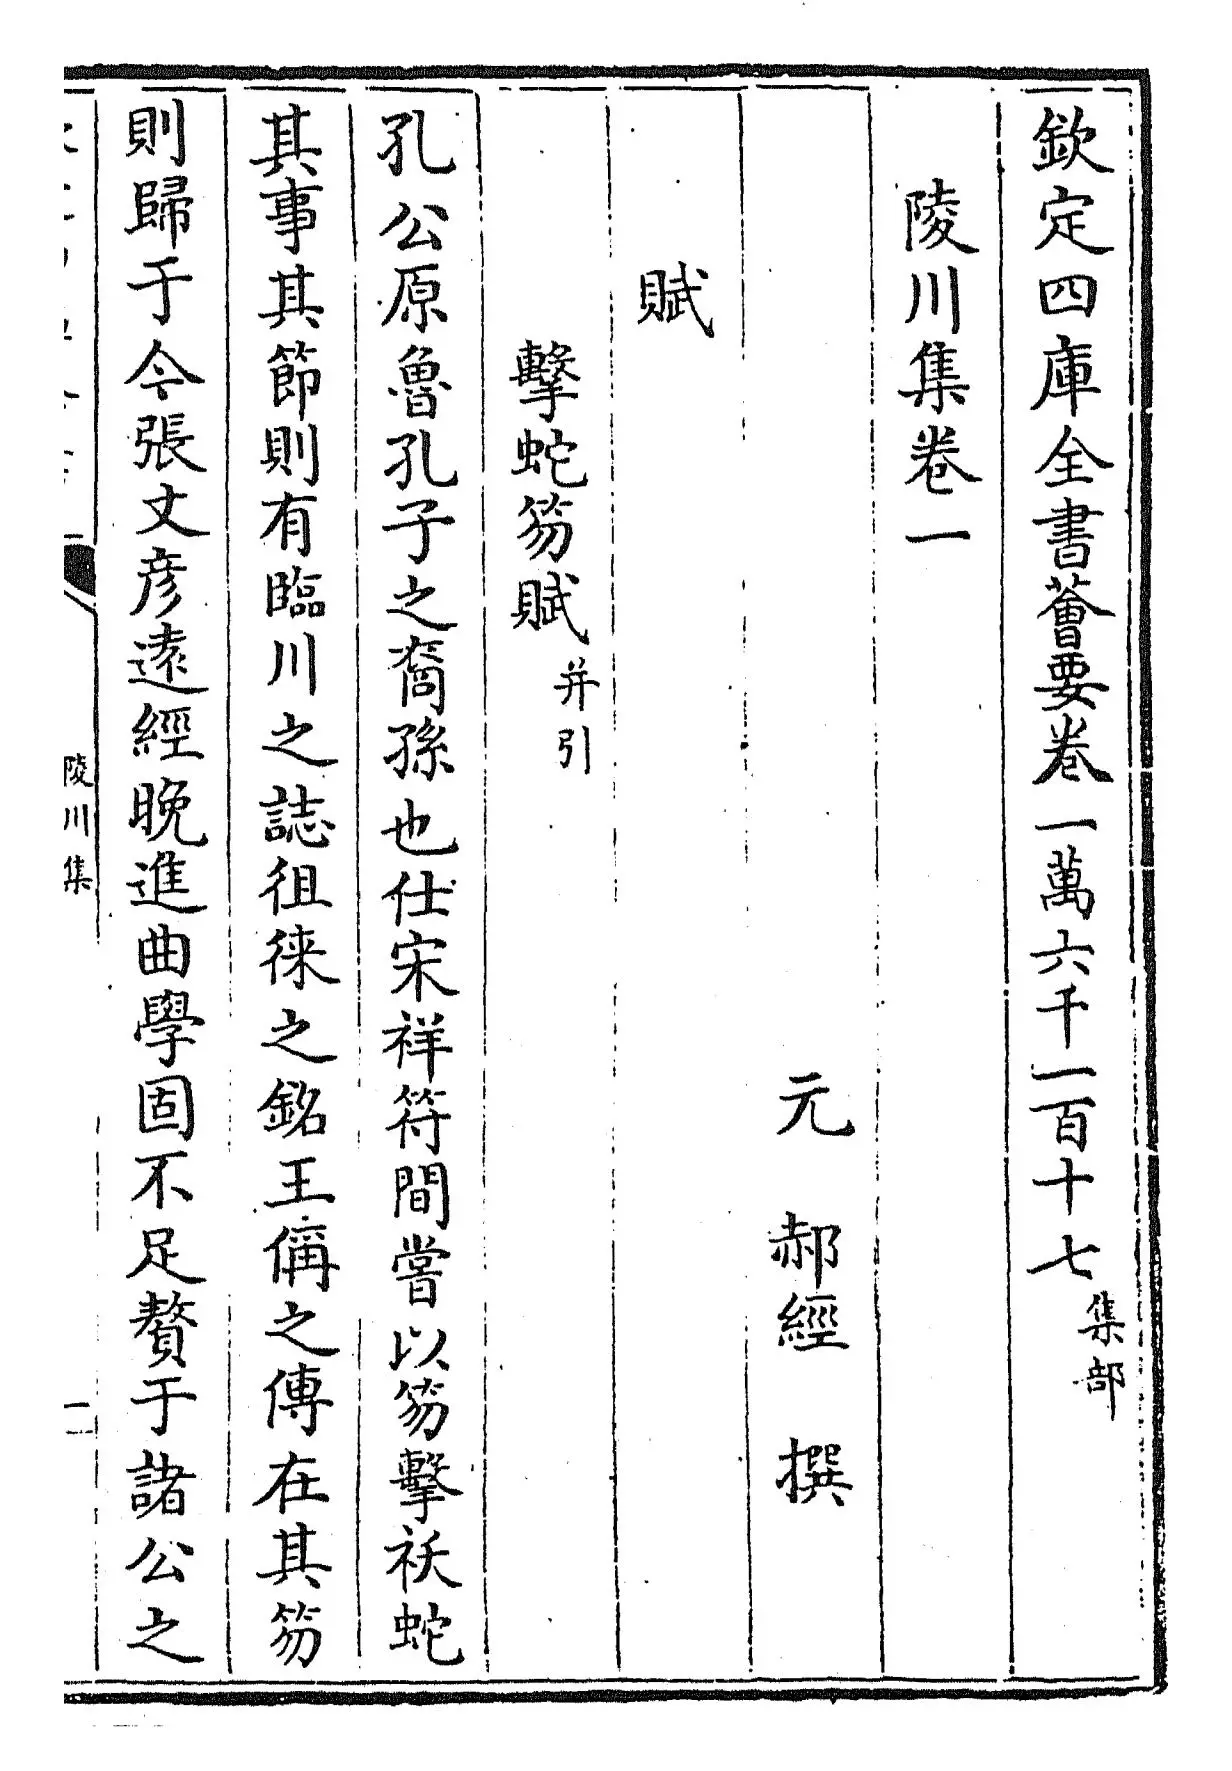 欽定四庫全書薈要卷一萬六千一百十七集部
陵川集卷一
元 郝經 撰
賦
擊蛇笏賦并引
孔公原魯孔子之裔孫也仕宋祥符間嘗以笏擊祅蛇
其事其節則有臨川之誌徂徠之銘王偁之傳在其笏
則歸于今張丈彥遠經晚進曲學固不足贅于諸公之
陵川集
一